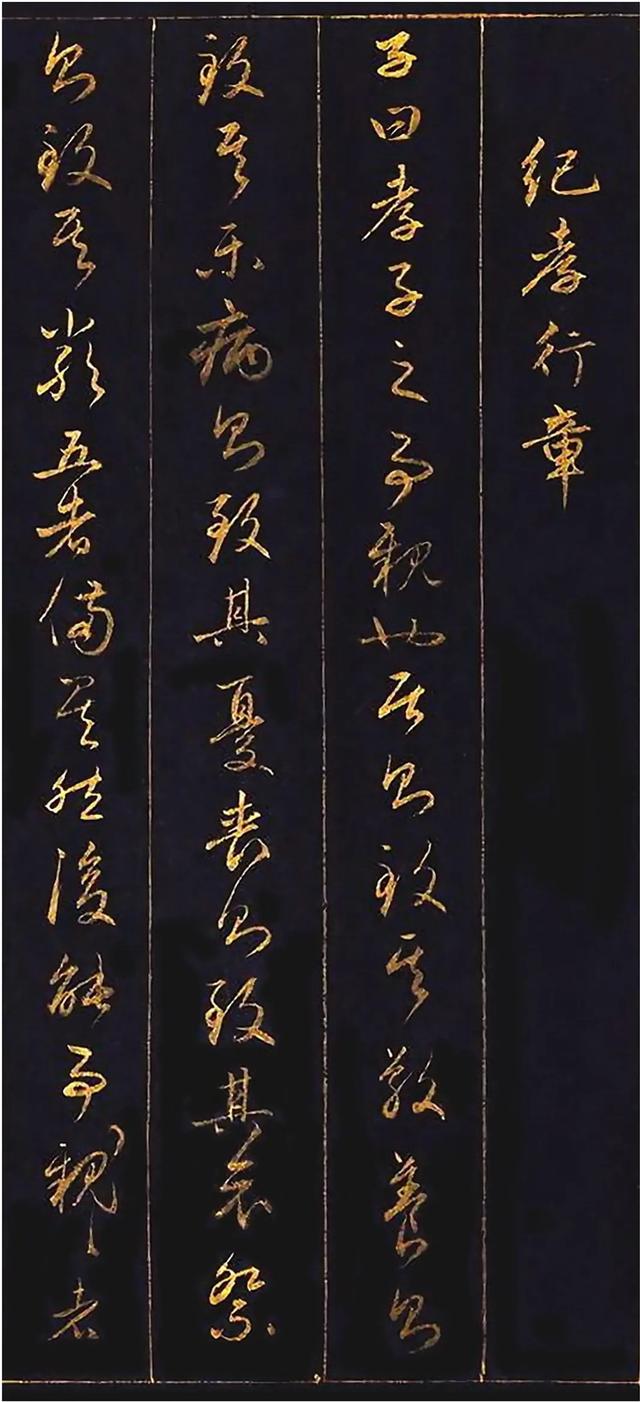 紀孝行章
子曰孝子之事親也居則致其敬養則
致其樂病則致其憂喪則致其哀祭
則致其嚴五者備矣然後能事〻親〻者